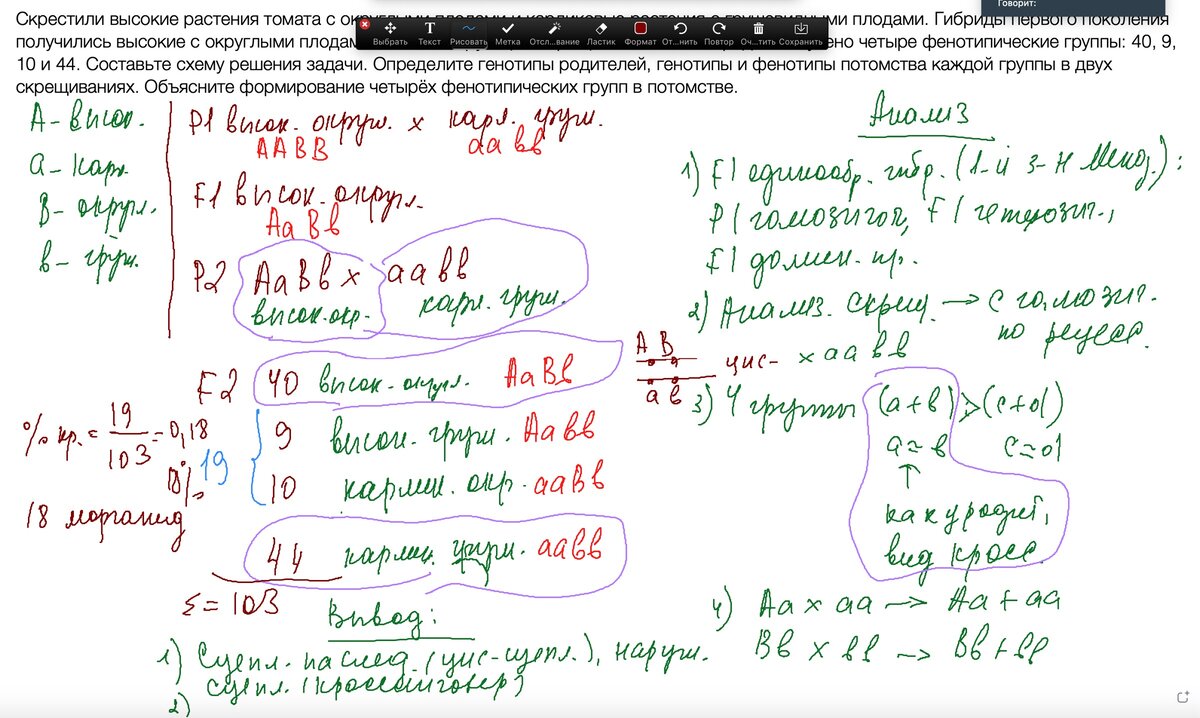 Скрестили высокие растения томата с
ми плодами. Гибриды первого поколения
получились высокие с округлыми плодам
ено четыре фенотипические группы: 40, 9,
10 и 44. Составьте схему решения задачи. Определите генотипы родителей, генотипы и фенотипы потомства каждой группы в двух
скрещиваниях. Объясните формирование четырёх фенотипических групп в потомстве.
Говорит:
Выбрать
Текст
Рисовать
Метка
Отсл...вание
Ластик
Формат
От...нить
Повтор
Оч...тить
Сохранить
A - высок.
a - карл.
B - округл.
в - груш.
P1 высок. округл. x карл. груш.
AABB
aaвв
F1 высок. округл.
AaBв
P2 AaBв x aaвв
высок. окр. карл. груш.
F2 40 высок. округл. AaBв
9 высок. груш. Aaвв
10 карлик. окр. aaBв
44 карлик. груш. aaвв
Σ = 103
19
% кр. = 19/103 = 0,18
18%
18 морганид
Вывод:
1) Сцепл. наслед. (цис-сцепл.), наруш.
сцепл. (кроссинговер)
2)
Анализ
1) F1 единообр. гибр. (1-й з-н Менд.):
P1 гомозигот, F1 гетерозиг.,
F1 домин. пр.
2) Анализ. скрещ. → с гомозиг.
по рецесс.
AB
aв
цис- x aaвв
3) 4 группы (a+в) > (c+d)
a=в c=d
↑
как у родит,
вид кросс.
4) Aa x aa → Aa + aa
Bв x вв → Bв + вв